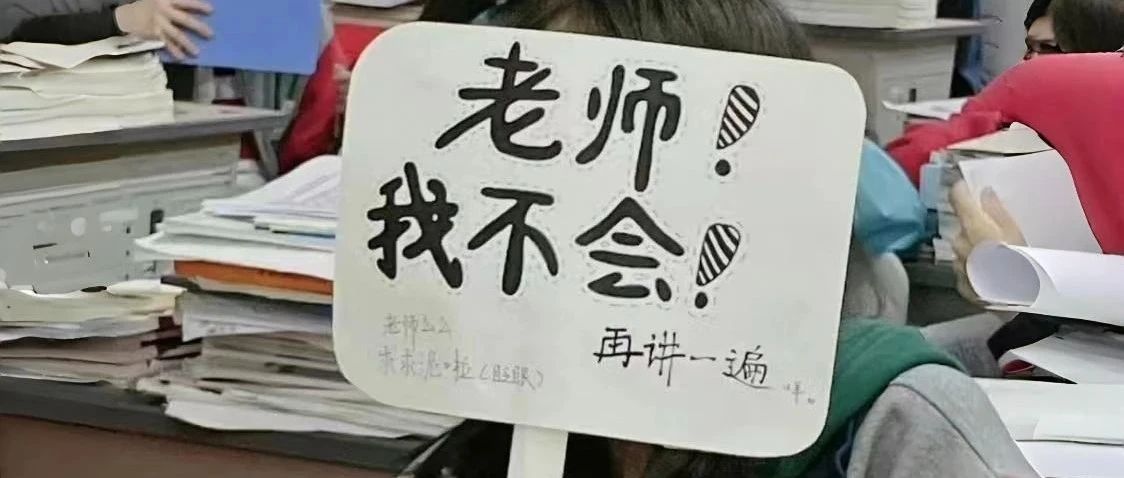 老师！
我不会！
再讲一遍
老师么么
求求泥啦(眨眼)